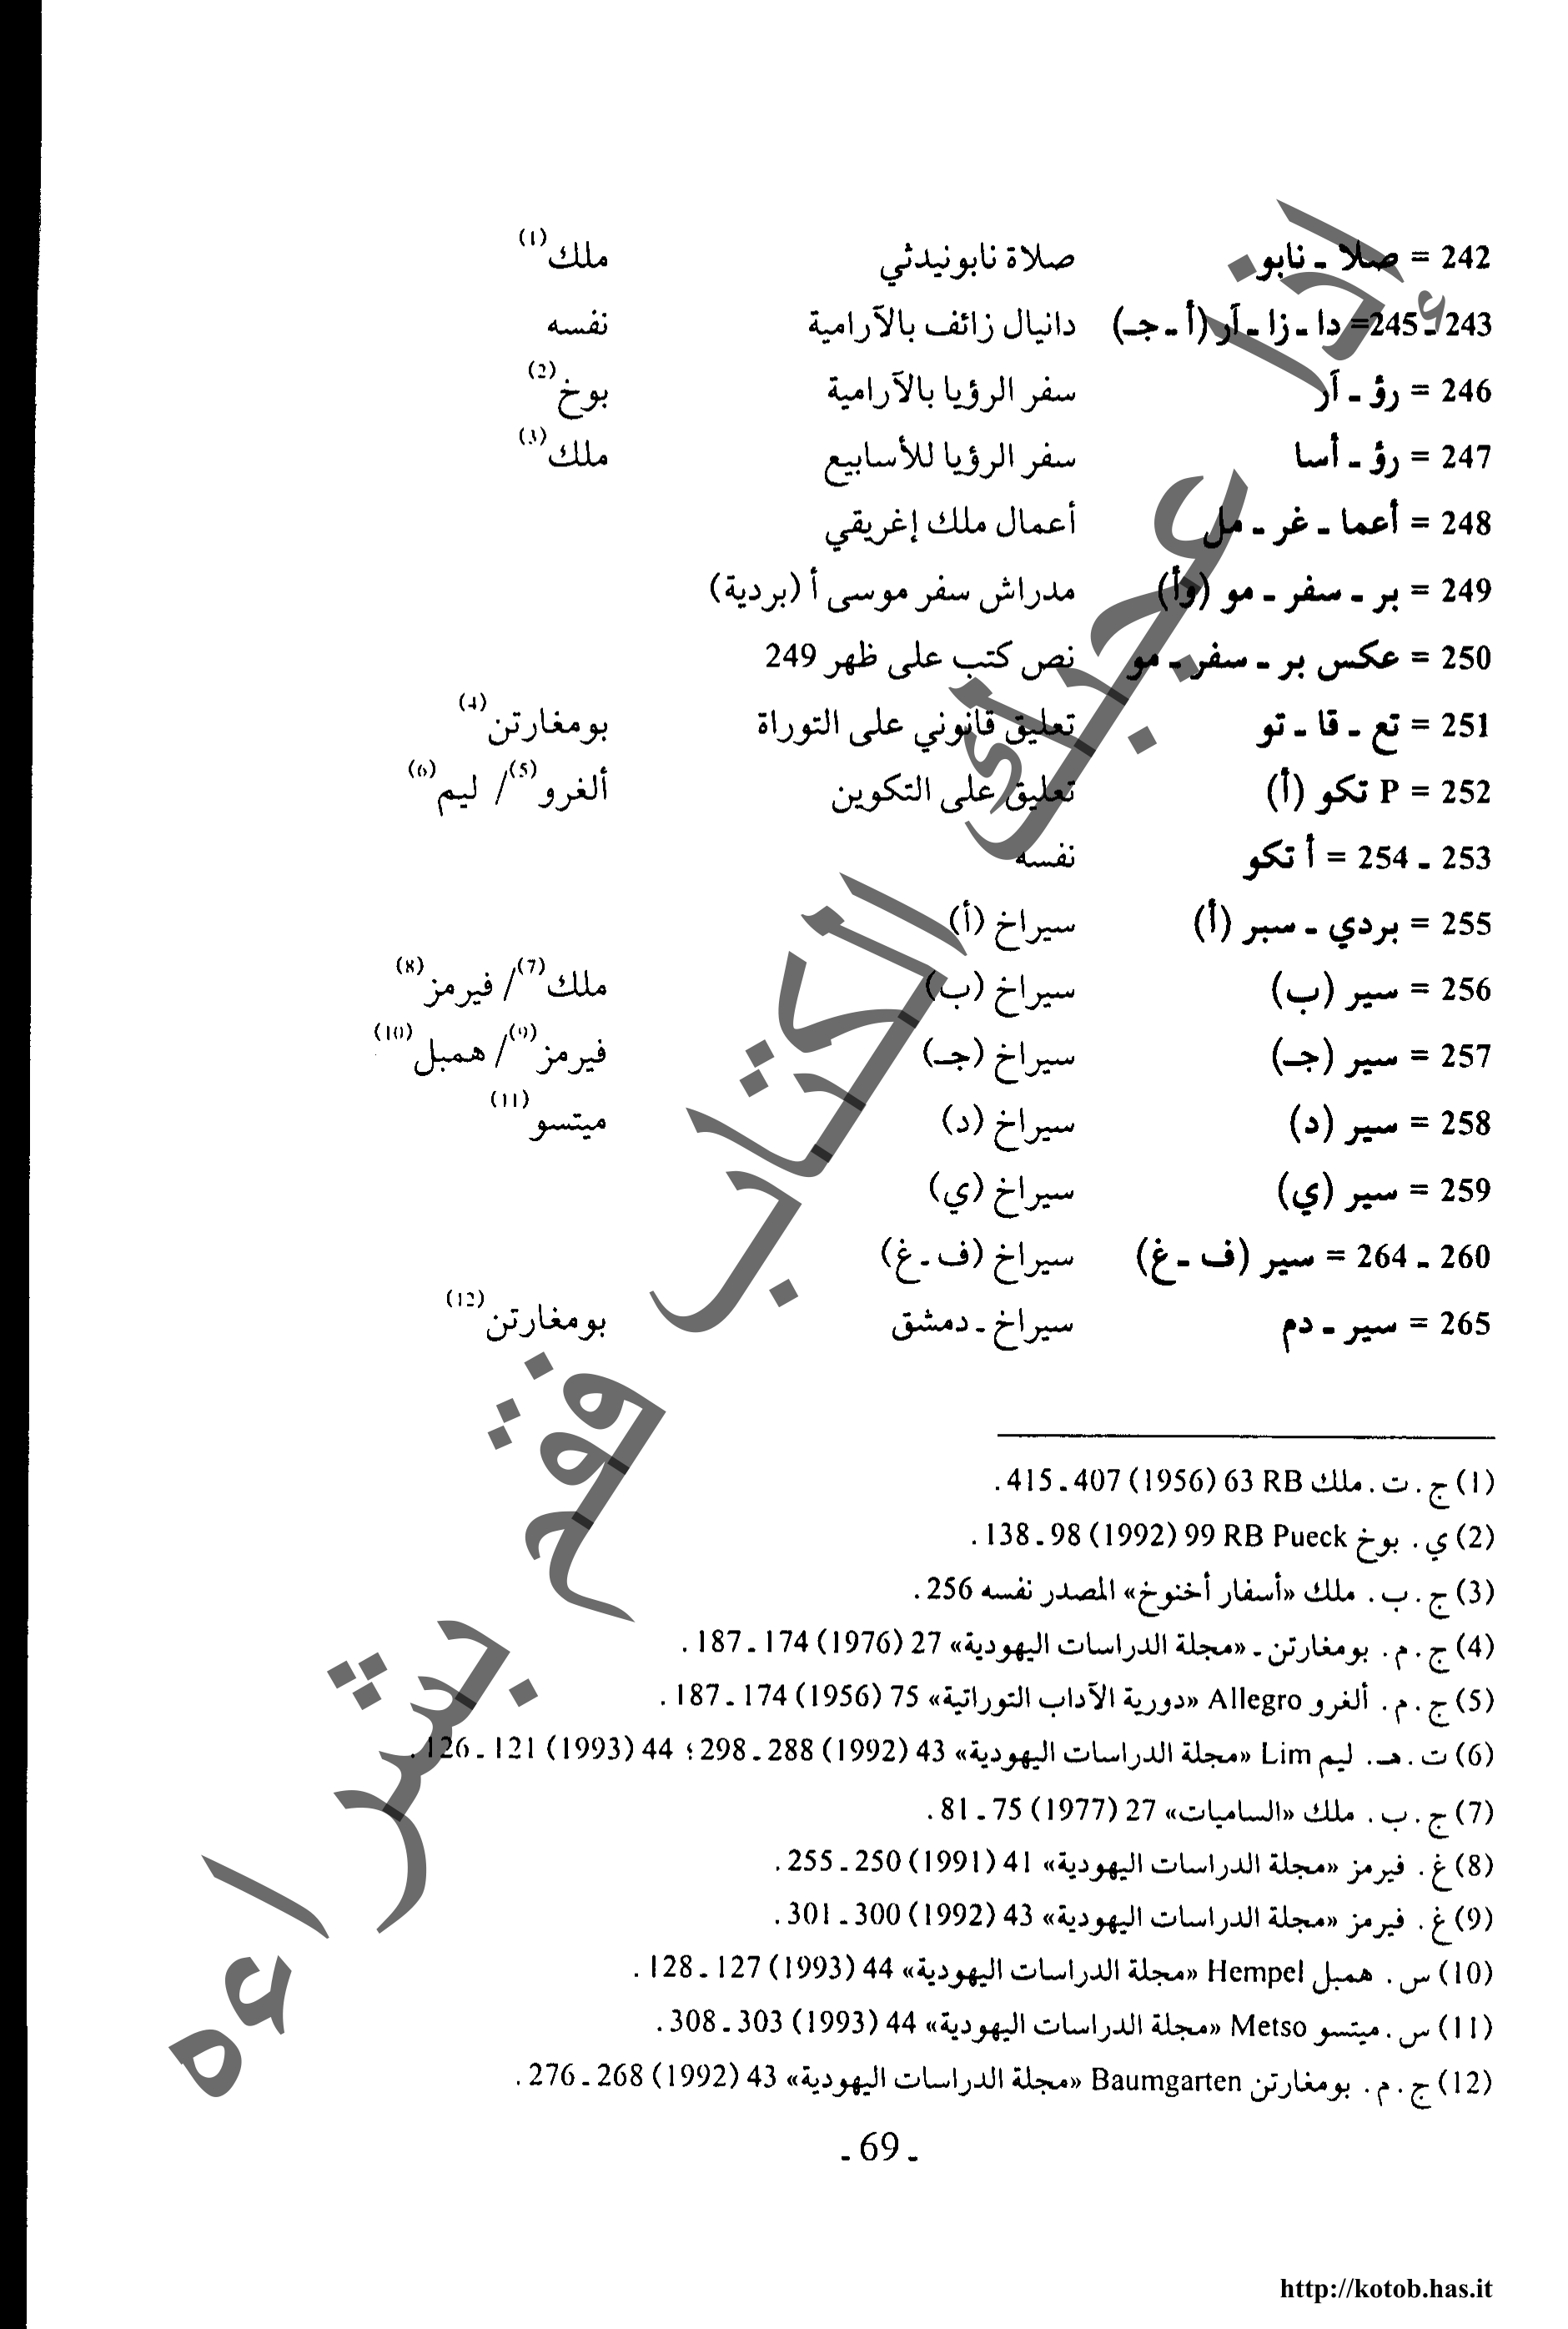 242 = صلا ـ نابو صلاة نابونيدثي ملك(1)
243 ـ 245= دا ـ زا ـ آر (أ ـ جـ) دانيال زائف بالآرامية نفسه
246 = رؤ ـ آر سفر الرؤيا بالآرامية بوخ(2)
247 = رؤ ـ أسا سفر الرؤيا للأسابيع ملك(3)
248 = أعما ـ غر ـ مل أعمال ملك إغريقي
249 = بر ـ سفر ـ مو (وأ) مدراش سفر موسى أ (بردية)
250 = عكس بر ـ سفر ـ مو نص كتب على ظهر 249
251 = تع ـ قا ـ تو تعليق قانوني على التوراة بومغارتن(4)
252 = P تكو (أ) تعليق على التكوين ألغرو(5)/ ليم(6)
253 ـ 254 = أ تكو نفسه
255 = بردي ـ سبر (أ) سيراخ (أ)
256 = سير (ب) سيراخ (ب) ملك(7)/ فيرمز(8)
257 = سير (جـ) سيراخ (جـ) فيرمز(9)/ همبل(10)
258 = سير (د) سيراخ (د) ميتسو(11)
259 = سير (ي) سيراخ (ي)
260 ـ 264 = سير (ف ـ غ) سيراخ (ف ـ غ)
265 = سير ـ دم سيراخ ـ دمشق بومغارتن(12)
(1) ج. ت. ملك RB 63 (1956) 407 ـ 415.
(2) ي. بوخ RB Pueck 99 (1992) 98 ـ 138.
(3) ج. ب. ملك «أسفار أخنوخ» المصدر نفسه 256.
(4) ج. م. بومغارتن ـ «مجلة الدراسات اليهودية» 27 (1976) 174 ـ 187.
(5) ج. م. ألغرو Allegro «دورية الآداب التوراتية» 75 (1956) 174 ـ 187.
(6) ت. هـ. ليم Lim «مجلة الدراسات اليهودية» 43 (1992) 288 ـ 298؛ 44 (1993) 121 ـ 126.
(7) ج. ب. ملك «الساميات» 27 (1977) 75 ـ 81.
(8) غ. فيرمز «مجلة الدراسات اليهودية» 41 (1991) 250 ـ 255.
(9) غ. فيرمز «مجلة الدراسات اليهودية» 43 (1992) 300 ـ 301.
(10) س. همبل Hempel «مجلة الدراسات اليهودية» 44 (1993) 127 ـ 128.
(11) س. ميتسو Metso «مجلة الدراسات اليهودية» 44 (1993) 303 ـ 308.
(12) ج. م. بومغارتن Baumgarten «مجلة الدراسات اليهودية» 43 (1992) 268 ـ 276.
ـ 69 ـ
إذا عجبك الكتاب فقم بشراءه
http://kotob.has.it